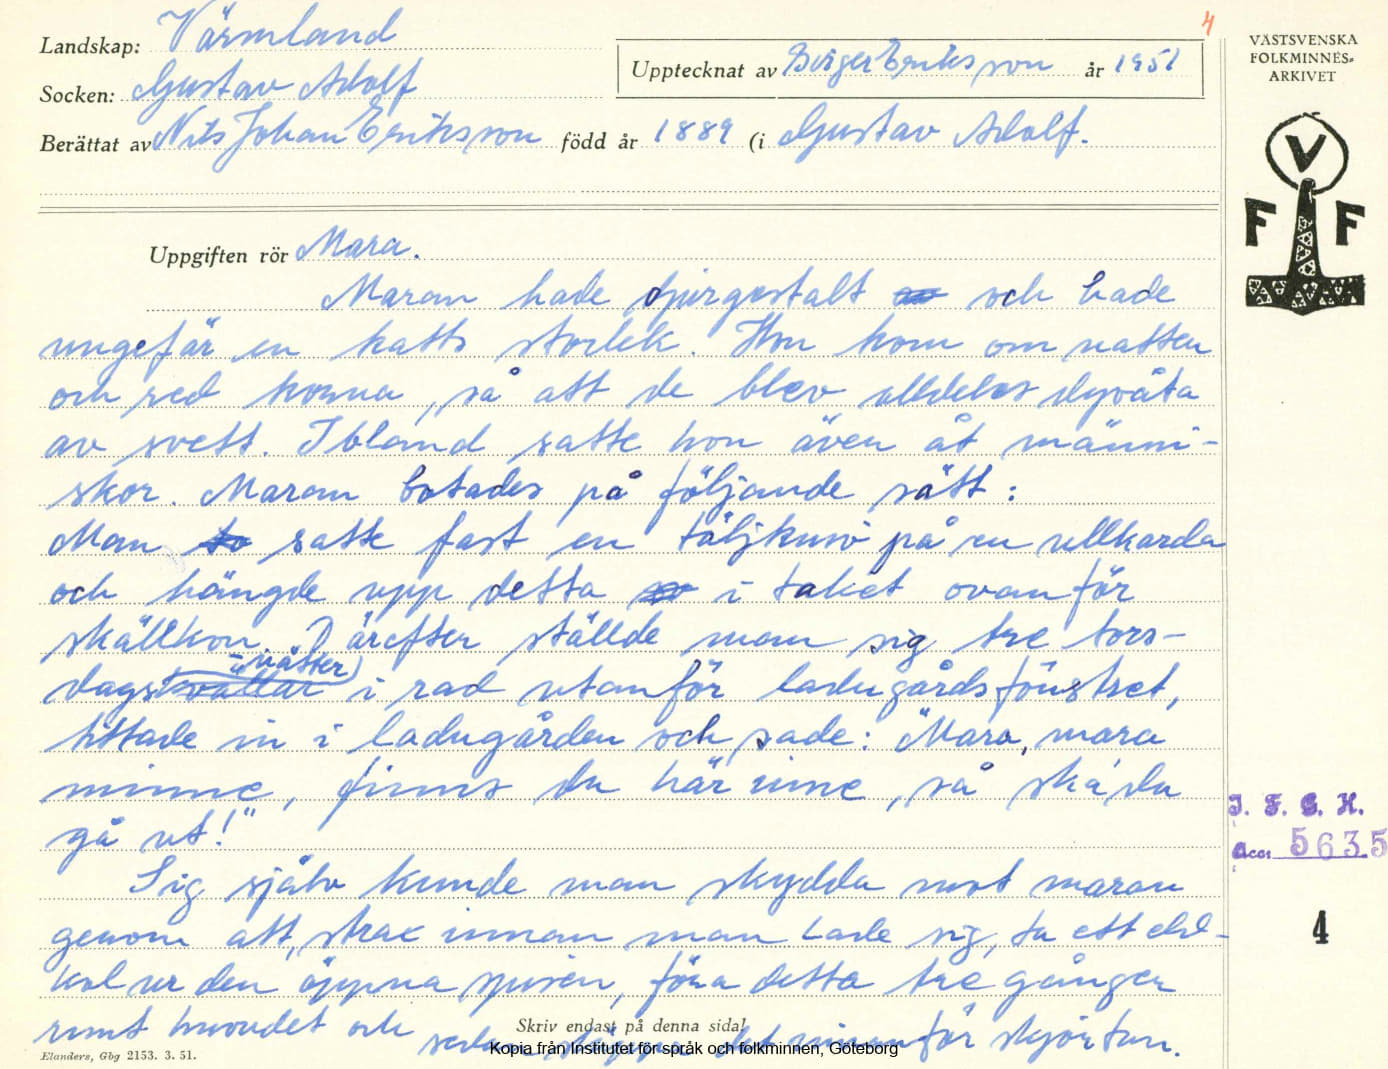 4
Landskap: Värmland
Socken: Gustav Adolf
Upptecknat av Birger Eriksson år 1951
Berättat av Nils Johan Eriksson född år 1889 (i Gustav Adolf.
VÄSTSVENSKA
FOLKMINNES-
ARKIVET
V
F F
Uppgiften rör Mara.
Maran hade djurgestalt och hade
ungefär en katts storlek. Hon kom om natten
och red korna, så att de blev alldeles dyvåta
av svett. Ibland satte hon även åt männi-
skor. Maran botades på följande sätt:
Man satte fast en täljkniv på en ullkarda
och hängde upp detta i taket ovanför
skällkon. Därefter ställde man sig tre tors-
-nätter
dagskvällar i rad utanför ladugårdsfönstret,
tittade in i ladugården och sade: "Mara, mara
minne, finns du här inne, så ska' du
gå ut!"
Sig själv kunde man skydda mot maran
genom att, strax innan man lade sig, ta ett eld-
kol ur den öppna spisen, föra detta tre gånger
runt huvudet och sedan släppa det innanför skjortan.
Skriv endast på denna sida!
Kopia från Institutet för språk och folkminnen, Göteborg
Elanders, Gbg 2153. 3. 51.
I. F. G. H.
Acc: 5635
4